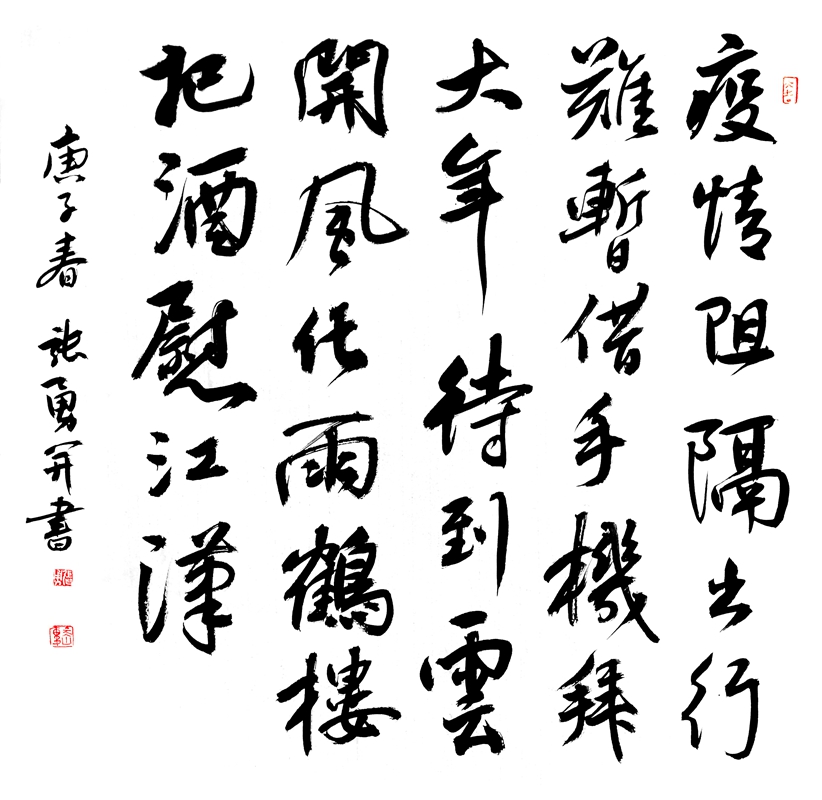 疫情阻隔出行
難暫借手機拜
大年待到雲
開風化雨鶴樓
把酒慰江漢
庚子春 張勇并書